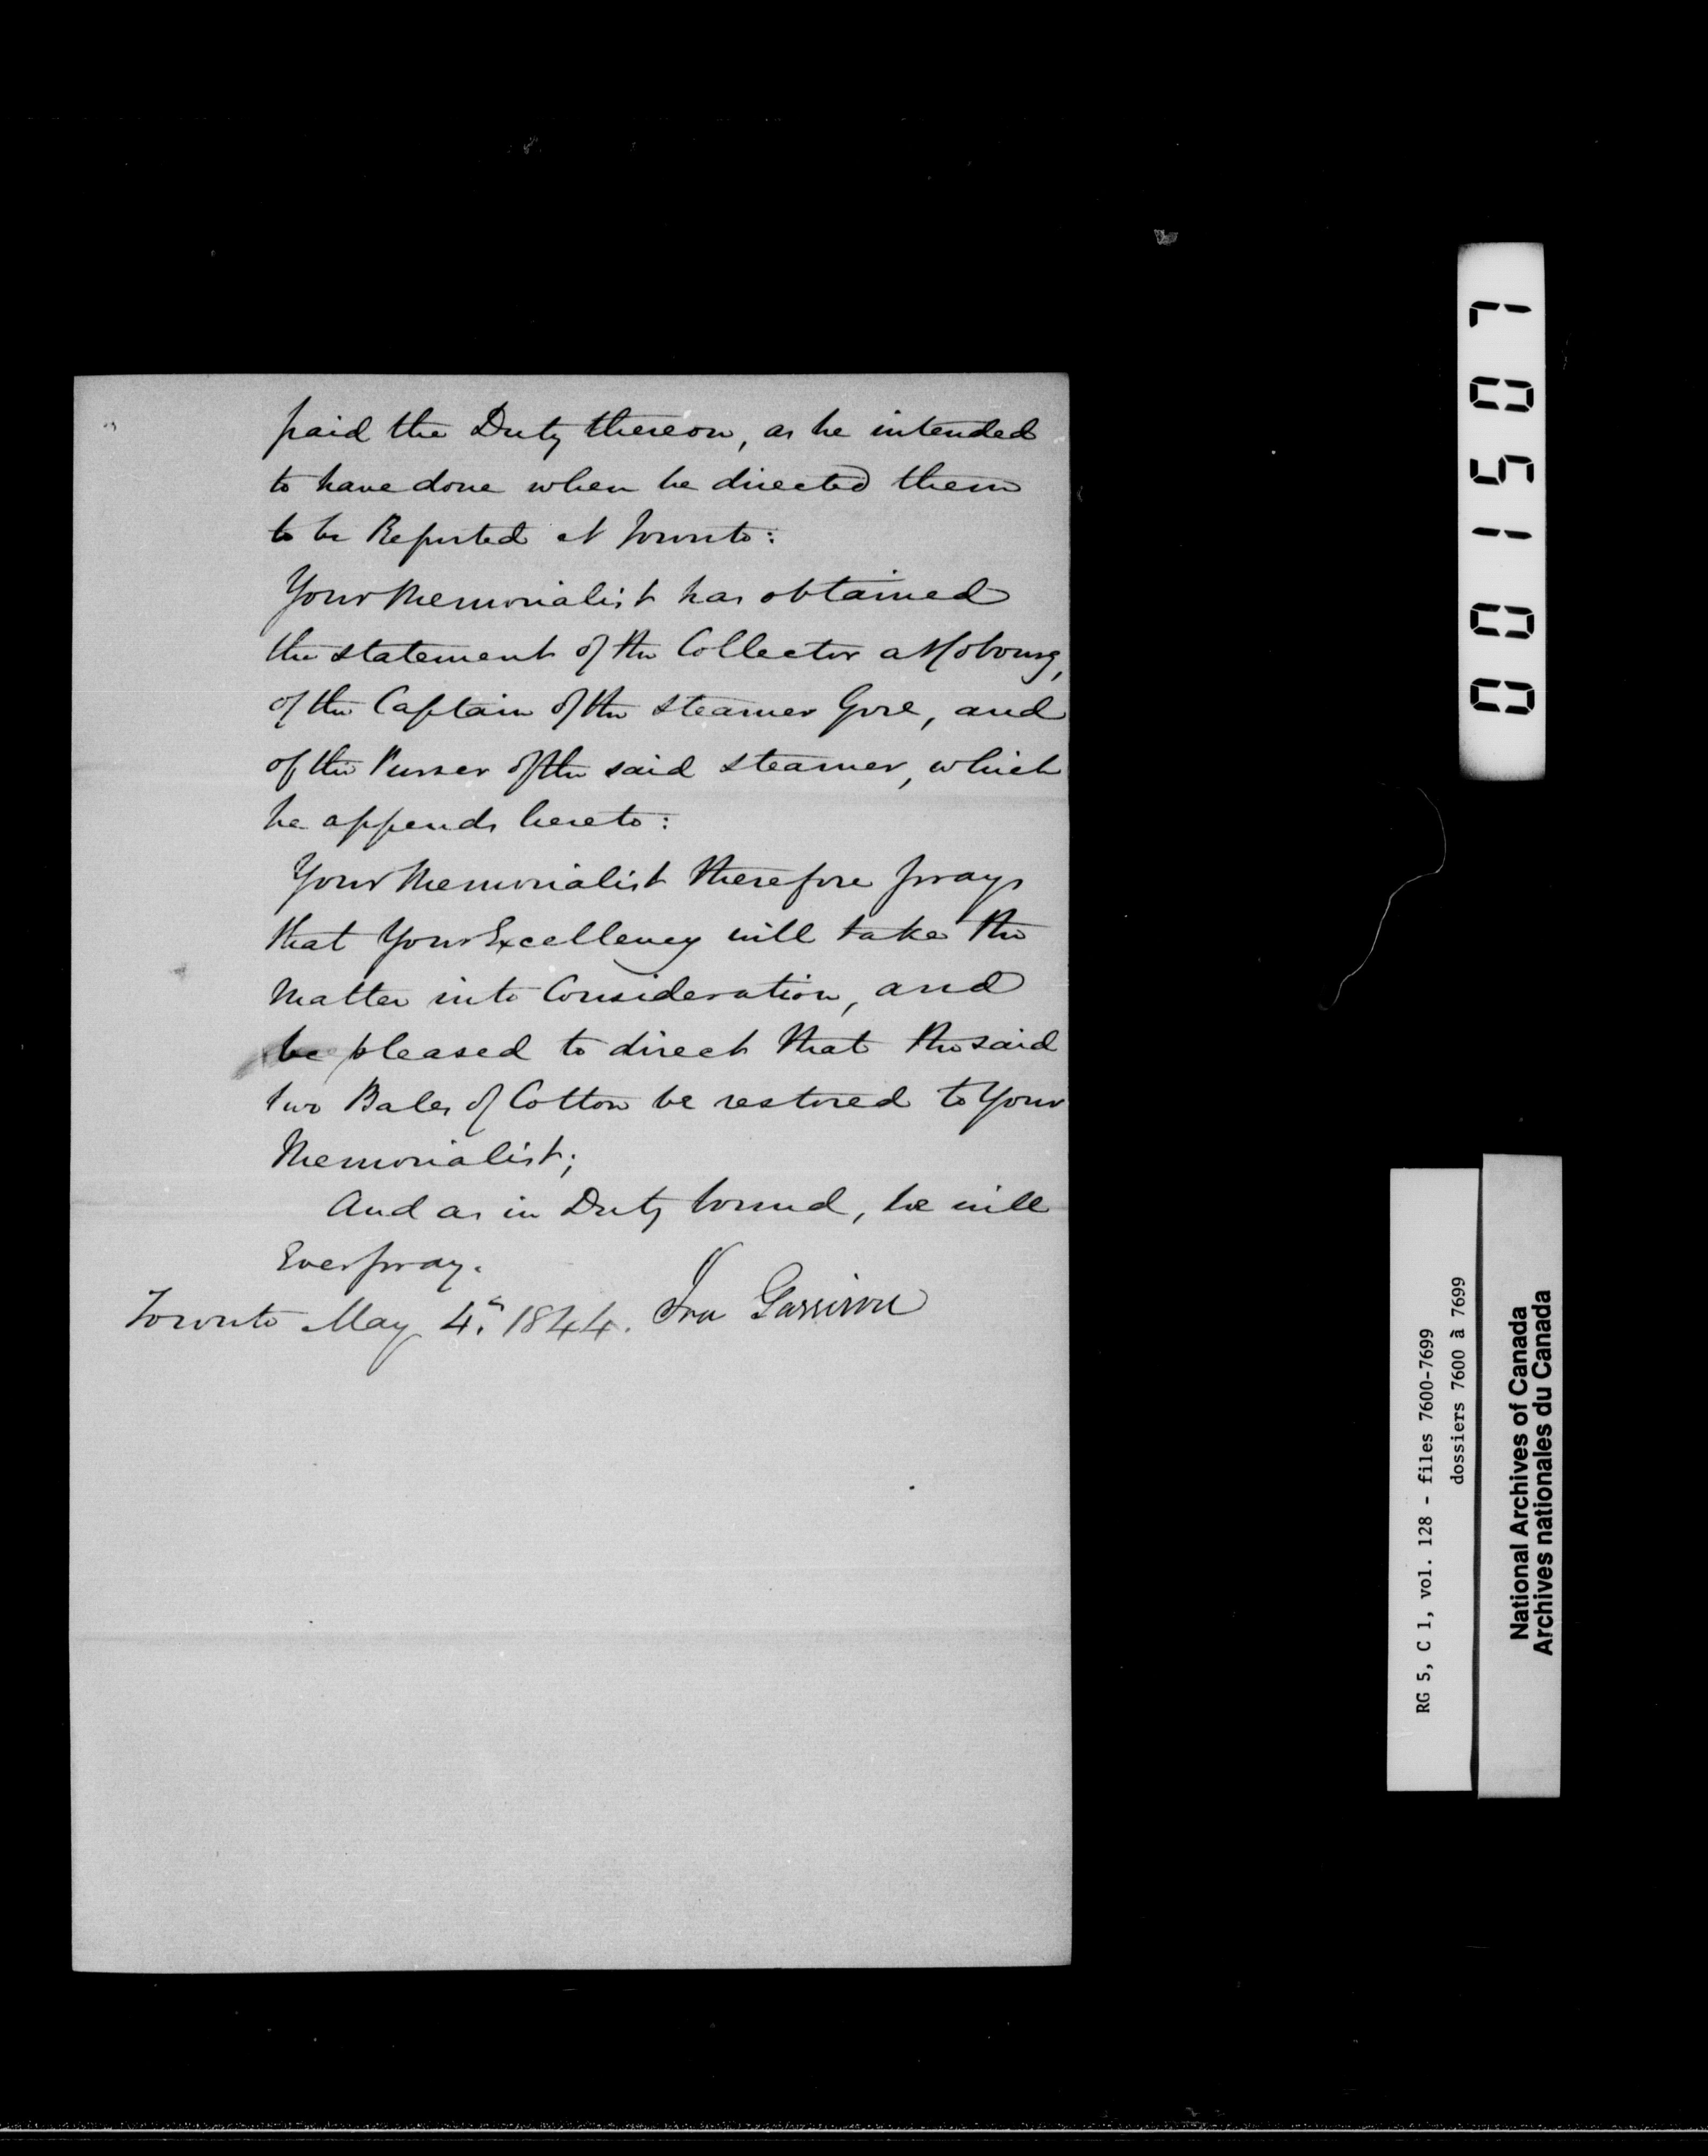 paid the Duty thereon, as he intended
to have done when he directed them
to be Reported at Toronto:
Your Memorialist has obtained
the statement of the Collector at Cobourg,
of the Captain of the Steamer Gore, and
of the Purser of the said Steamer, which
he appends hereto:
Your Memorialist therefore prays
that Your Excellency will take the
Matter into Consideration, and
be pleased to direct that the said
two Bales of Cotton be restored to Your
Memorialist;
And as in Duty bound, he will
Ever pray.
Toronto May 4th 1844. Ira Garrison
001507
RG 5, C 1, vol. 128 - files 7600-7699
dossiers 7600 à 7699
National Archives of Canada
Archives nationales du Canada